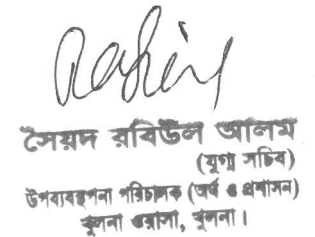 সৈয়দ রবিউল আলম
(যুগ্ম সচিব)
উপব্যবস্থাপনা পরিচালক (অর্থ ও প্রশাসন)
খুলনা ওয়াসা, খুলনা।